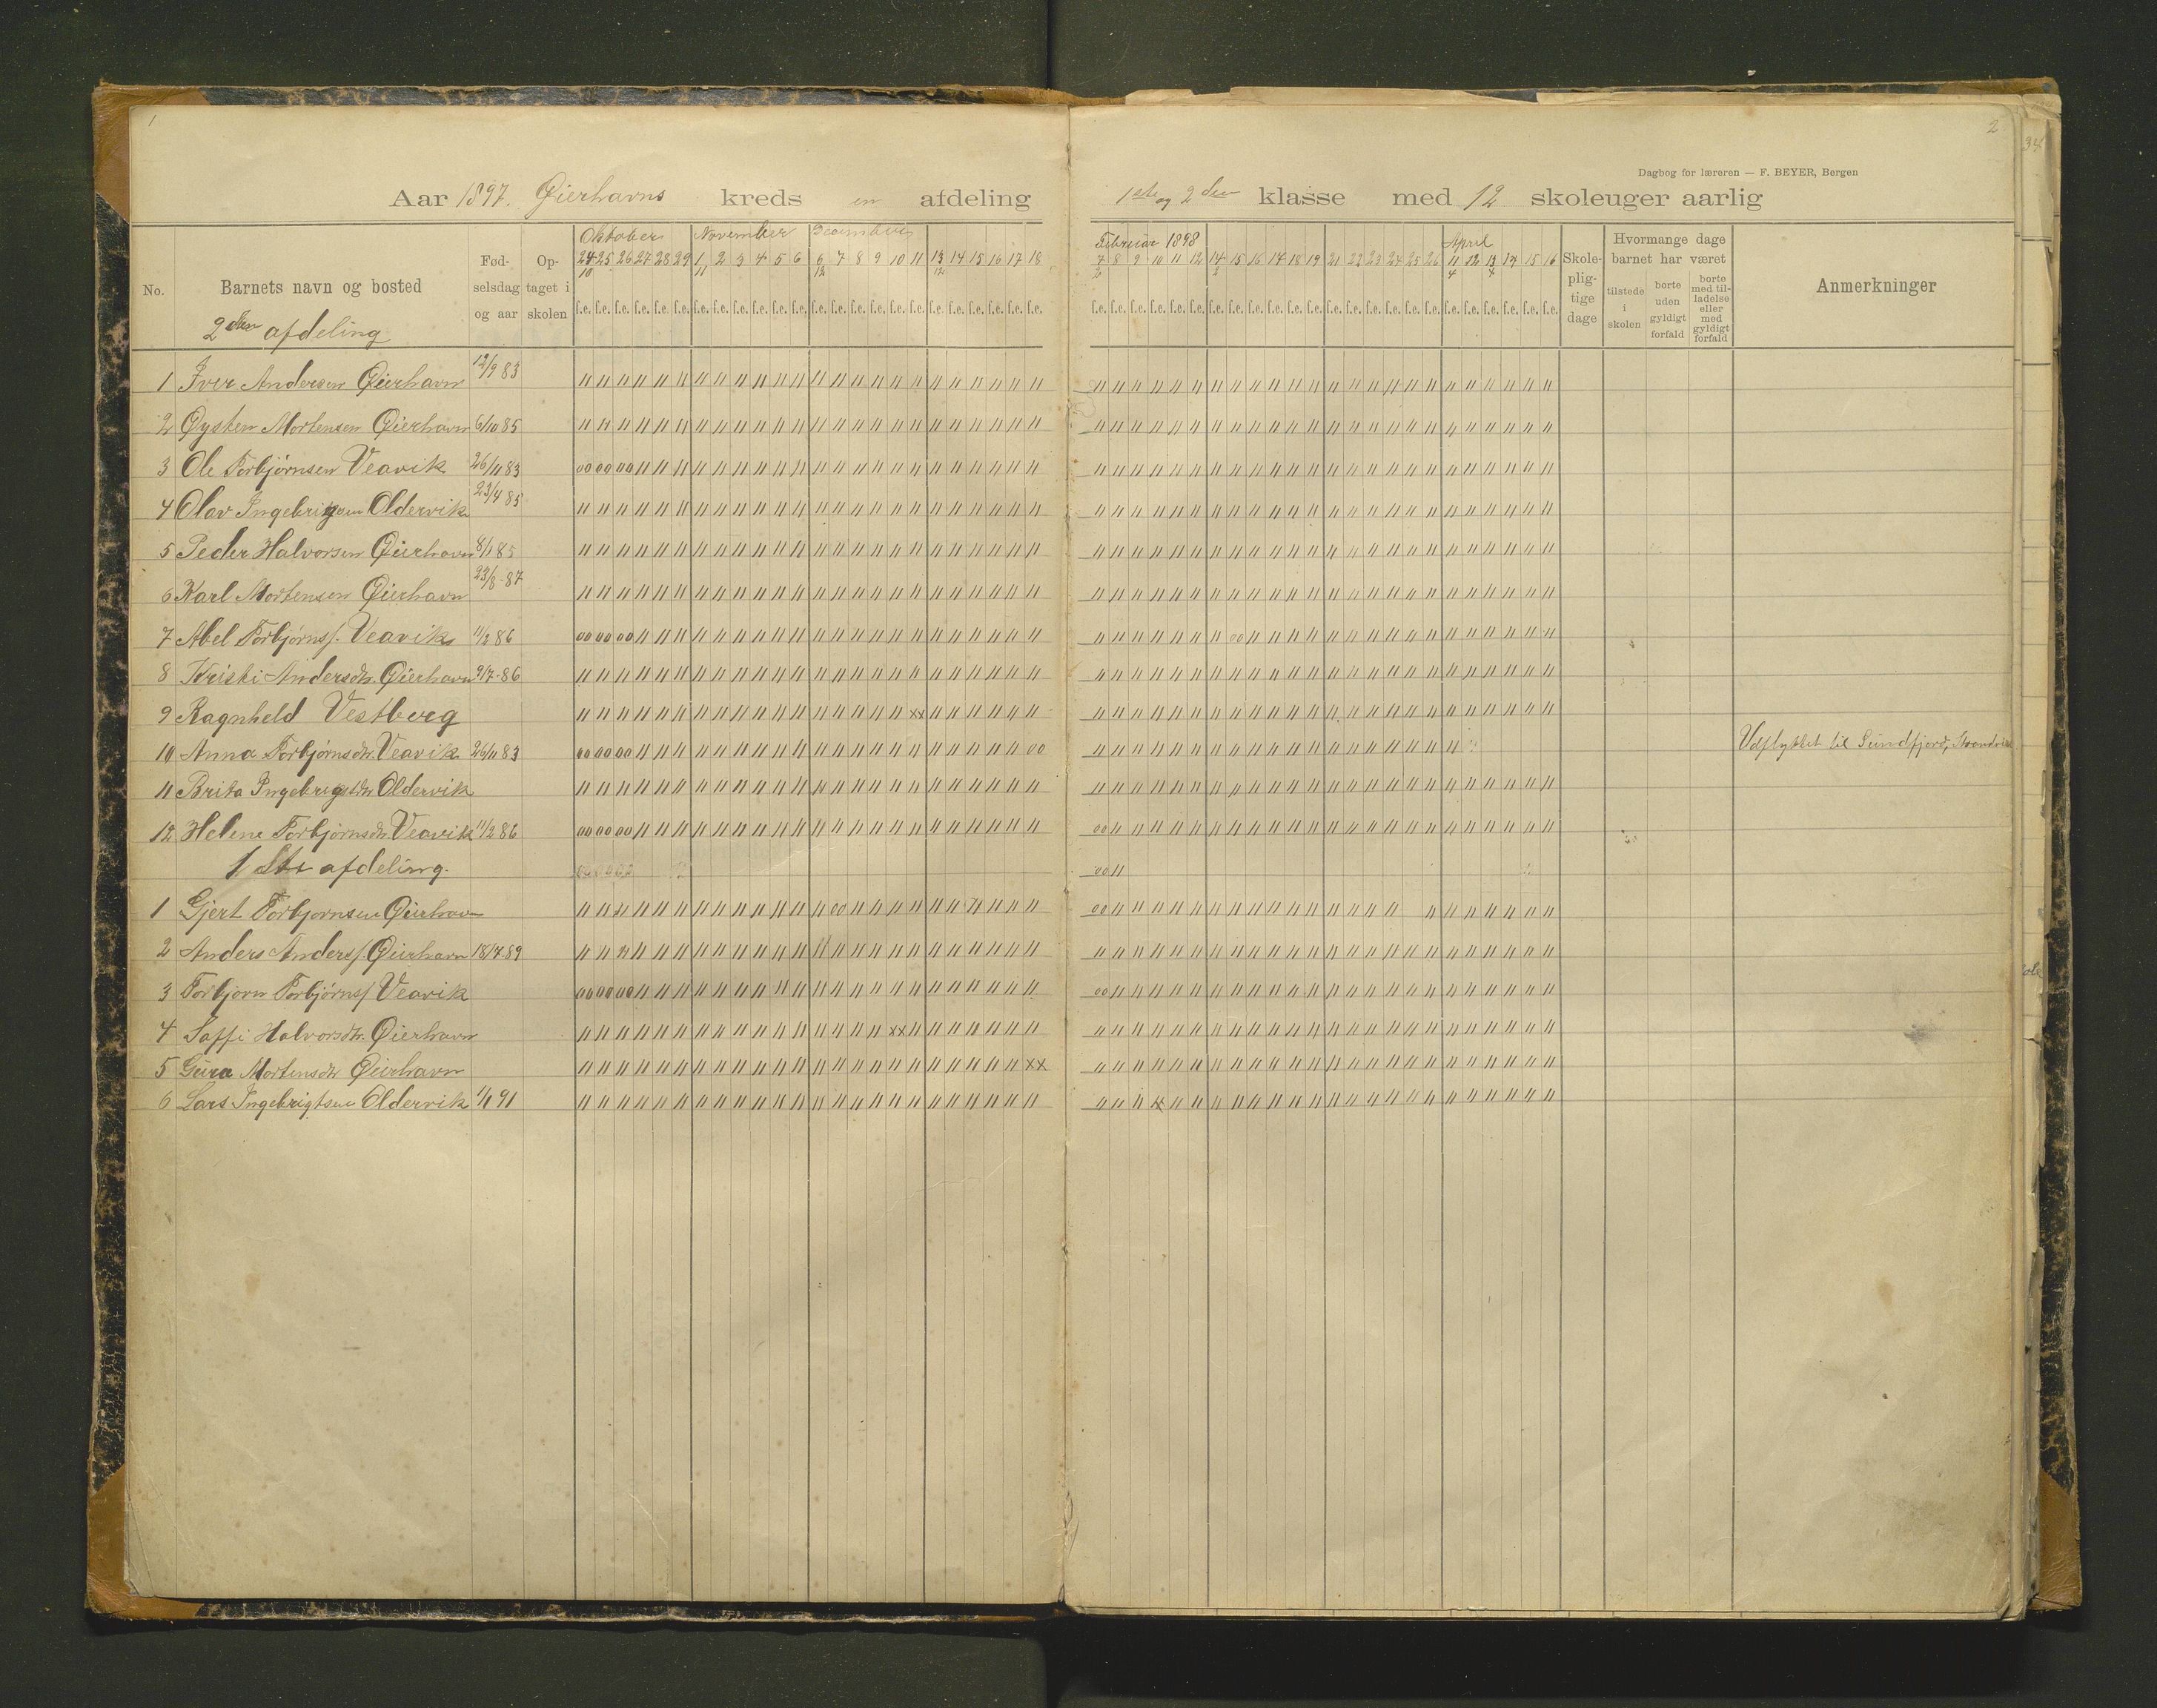 1
2
34
Dagbog for læreren — F. BEYER, Bergen
Aar 1897. Øierhavns kreds en afdeling 1ste og 2den klasse med 12 skoleuger aarlig
No. Barnets navn og bosted Fødselsdag og aar Optaget i skolen Oktober November December Februar 1898 April Skolepligtige dage Hvormange dage barnet har været tilstede i skolen borte uden gyldigt forfald borte med tilladelse eller med gyldigt forfald Anmerkninger
24 25 26 27 28 29 1 2 3 4 5 6 6 7 8 9 10 11 13 14 15 16 17 18 7 8 9 10 11 12 14 15 16 17 18 19 21 22 23 24 25 26 11 12 13 14 15 16
10 11 12 12 2 2 4 4
2den afdeling
1 Iver Andersen Øierhavn 12/9 83
2 Øysten Mortensen Øierhavn 6/10 85
3 Ole Torbjørnsen Veavik 26/11 83
4 Olav Ingebrigsen Oldervik 23/4 85
5 Peder Halvorsen Øierhavn 8/1 85
6 Karl Mortensen Øierhavn 23/8-87
7 Abel Torbjørns. Veavik 11/2 86
8 Kristi Andersdtr. Øierhavn 9/7-86
9 Ragnheld Vestberg
10 Anna Torbjørnsdtr. Veavik 26/11 83 Udflyttet til Sundfjord,
11 Brita Ingebrigtsdtr Oldervik
12 Helene Torbjørnsdtr. Veavik 11/2 86
1ste afdeling.
1 Gjert Torbjornsen Øierhavn
2 Anders Anders. Øierhavn 18/7 89
3 Torbjorn Torbjørns. Veavik
4 Saffi Halvorsdtr. Øierhavn
5 Gura Mortensdtr Øierhavn
6 Lars Ingebrigtsen Oldervik 1/1 91